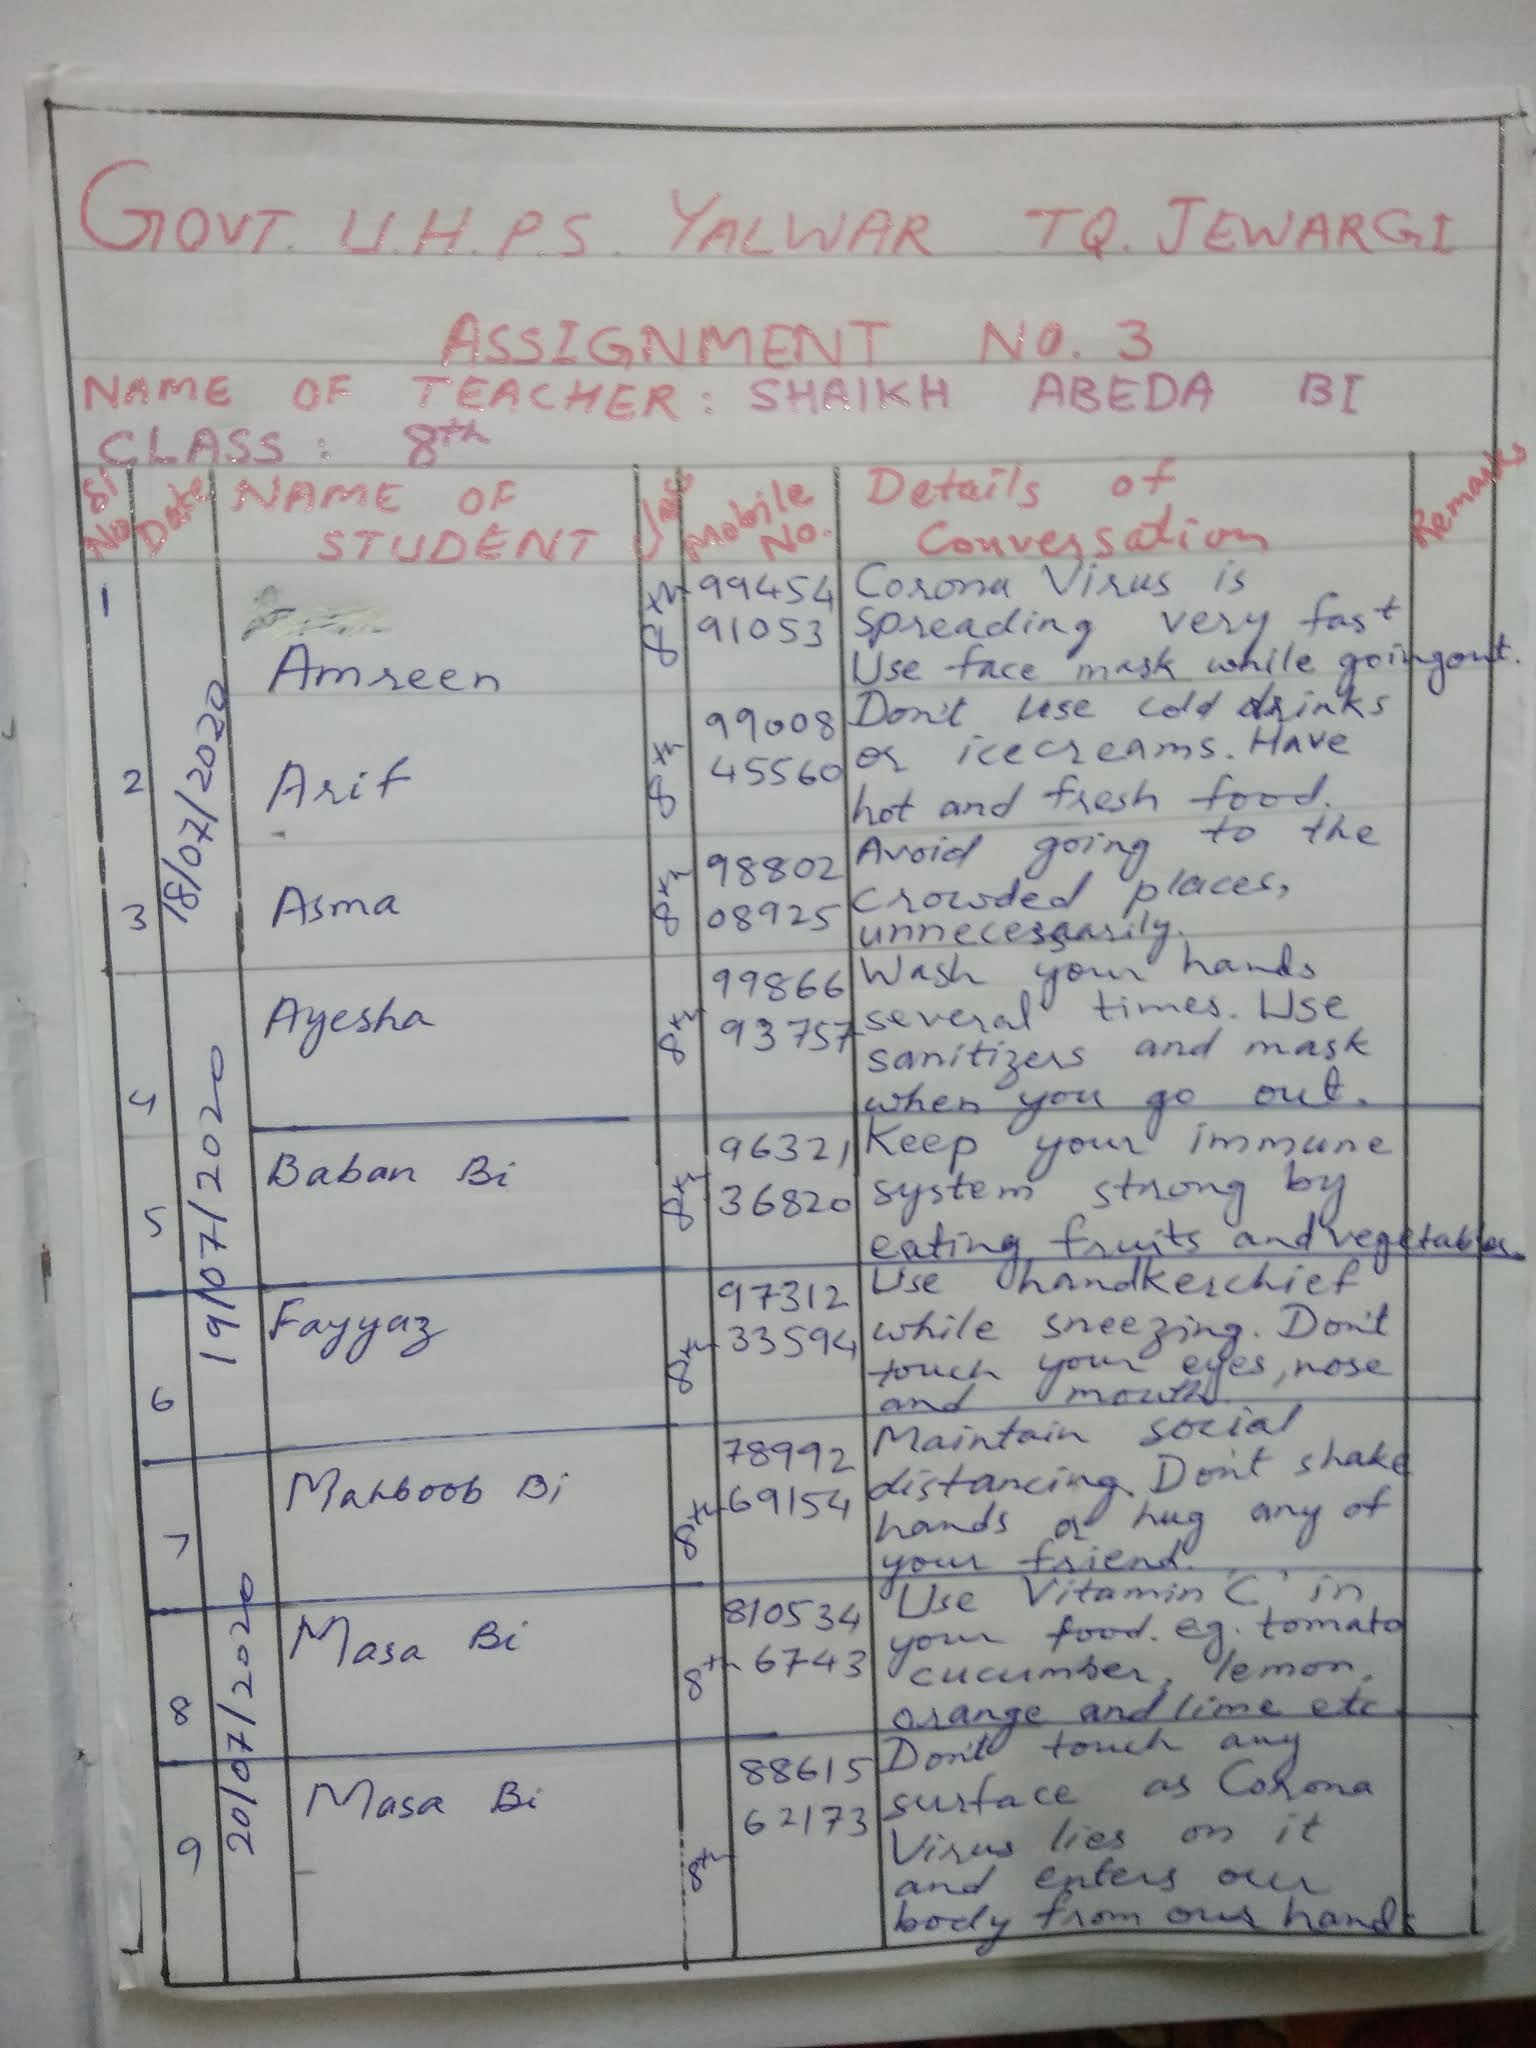 GOVT. U.H.P.S. YALWAR TQ. JEWARGI
ASSIGNMENT NO. 3
NAME OF TEACHER: SHAIKH ABEDA BI
CLASS: 8th
Sl No. Date NAME OF STUDENT Mobile No. Details of Conversation Remarks
18/07/2020
1 Amreen 8th 99454 91053
Corona Virus is
spreading very fast
Use face mask while goingout.
2 Arif 8th 99008 45560
Don't use cold drinks
or icecreams. Have
hot and fresh food.
3 Asma 8th 98802 08925
Avoid going to the
crowded places,
unnecessarily.
19/07/2020
4 Ayesha 8th 99866 93757
Wash your hands
several times. Use
sanitizers and mask
when you go out.
5 Baban Bi 8th 96321 36820
Keep your immune
system strong by
eating fruits and vegetables.
6 Fayyaz 8th 97312 33594
Use handkerchief
while sneezing. Don't
touch your eyes, nose
and mouth.
20/07/2020
7 Mahboob Bi 8th 78992 69154
Maintain social
distancing. Don't shake
hands or hug any of
your friend.
8 Masa Bi 8th 810534 6743
Use Vitamin 'C' in
your food. eg. tomato
cucumber, lemon,
orange and lime etc
9 Masa Bi 8th 88615 62173
Don't touch any
surface as Corona
Virus lies on it
and enters our
body from our hands